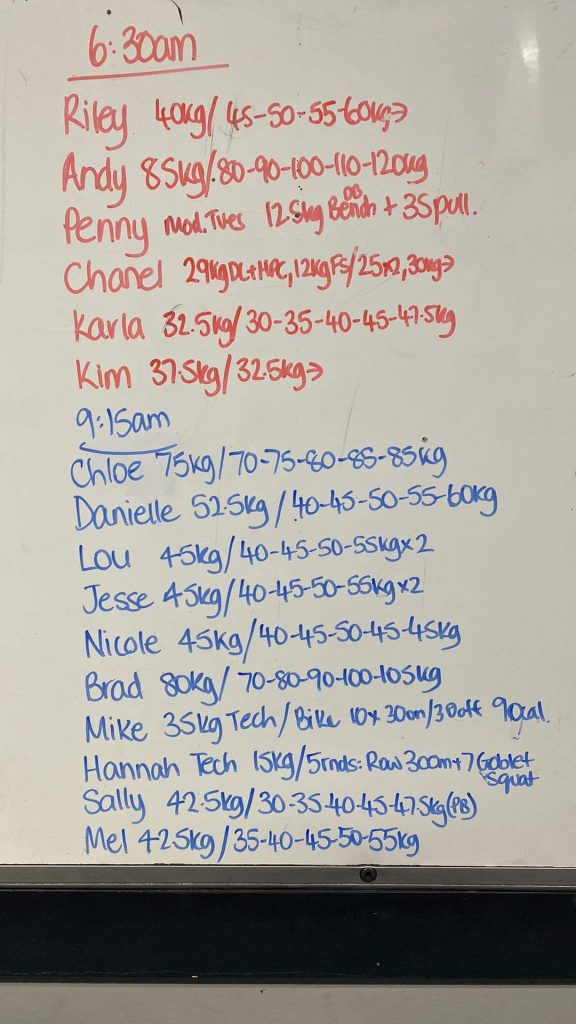 6:30am
Riley 40kg/ 45-50-55-60kg→
Andy 85kg/ 80-90-100-110-120kg
Penny Mod. Tues 12.5kg DB Bench + 35 pull.
Chanel 29kg DL+HPC, 12kg FS/25x2, 30kg→
Karla 32.5kg/30-35-40-45-47.5kg
Kim 37.5kg/32.5kg→
9:15am
Chloe 75kg/70-75-80-85-85kg
Danielle 52.5kg/40-45-50-55-60kg
Lou 45kg/40-45-50-55kgx2
Jesse 45kg/40-45-50-55kgx2
Nicole 45kg/40-45-50-45-45kg
Brad 80kg/ 70-80-90-100-105kg
Mike 35kg Tech/Bike 10x 30on/30off 90cal.
Hannah Tech 15kg/5rnds: Row 300m+7 Goblet
Squat
Sally 42.5kg/30-35-40-45-47.5kg(PB)
Mel 42.5kg/35-40-45-50-55kg